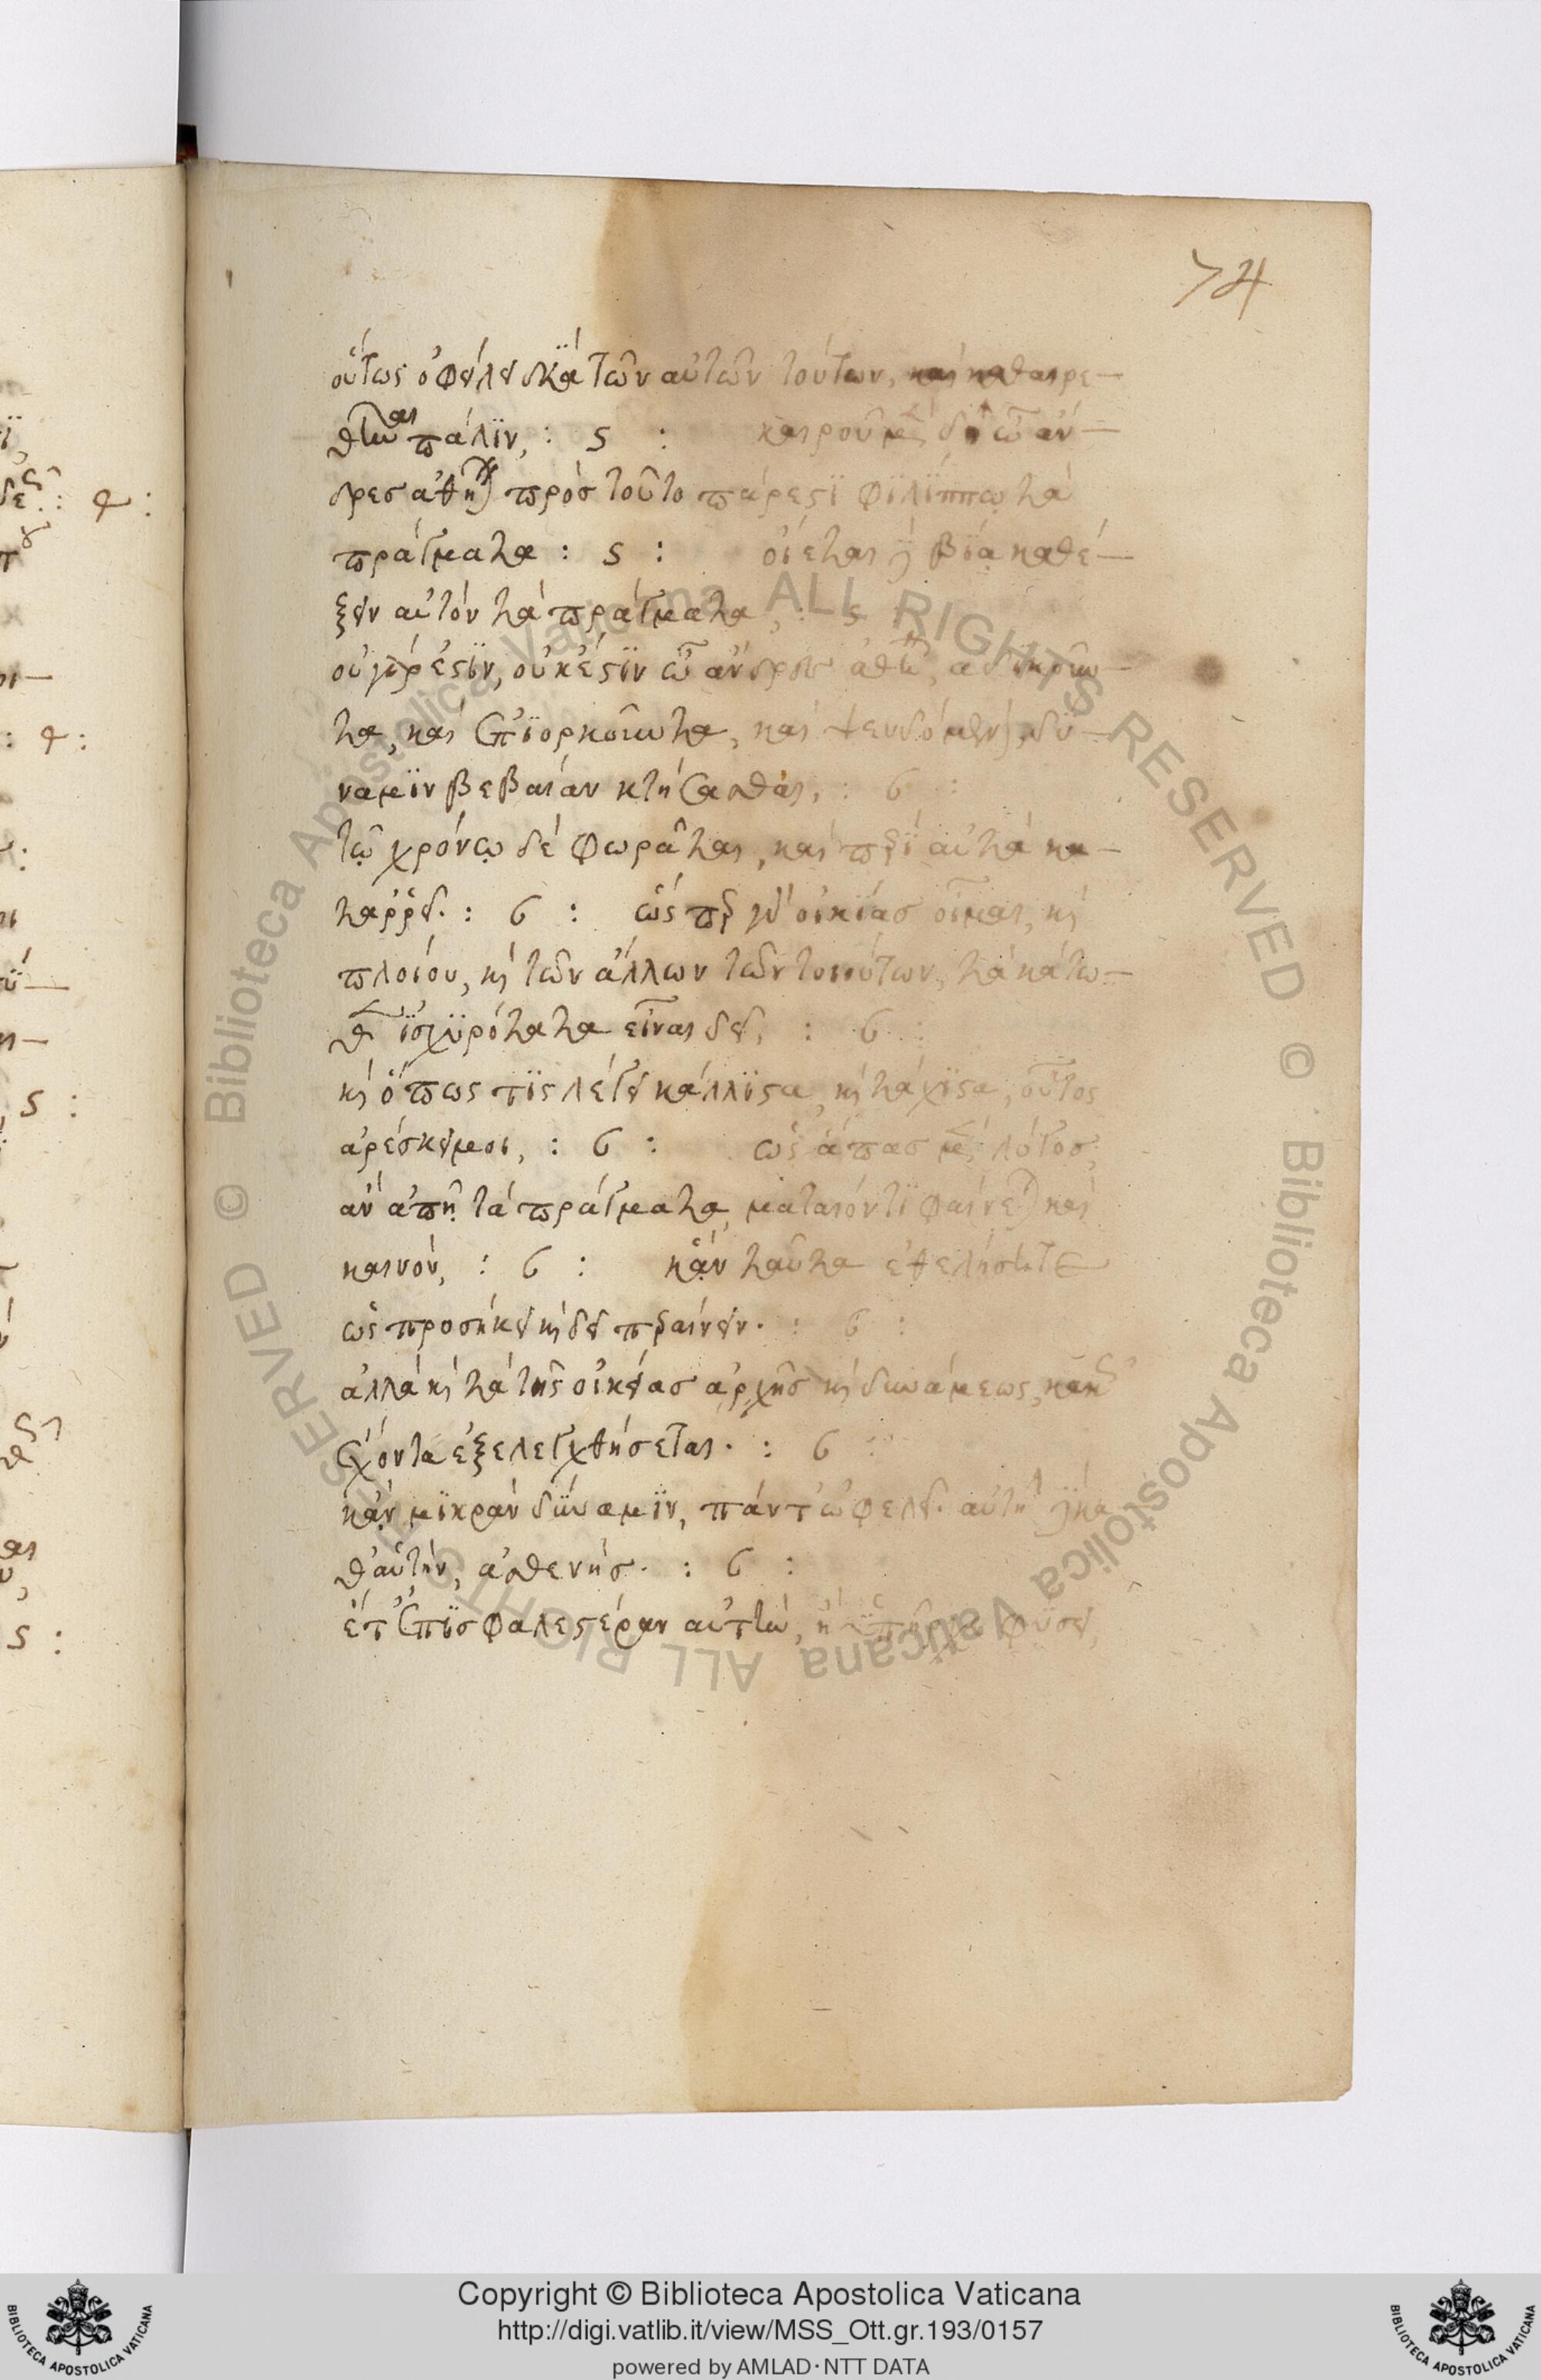 74
οὕτως ὀφείλει διὰ τῶν αὐτῶν τούτων, καὶ καθαιρε—
θῆναι πάλϊν, : ς :   καιροῦ μὲν δὴ ὦ ἄν—
δρες ἀθηναῖοι πρὸς τοῦτο πάρεστϊ φϊλΐππω τὰ
πράγματα : ς :   οἴεται βίᾳ καθέ—
ξειν αὐτὸν τὰ πράγματα, : ς
οὐ γάρ ἐστϊν, οὐκ ἔστϊν ὦ ἄνδρες ἀθη, ἀδικοῦν—
τα, καὶ ἐπϊορκοῦντα, καὶ ψευδόμενον, δύ—
ναμϊν βεβαίαν κτήσασθαι, : ϛ :
τῷ χρόνῳ δὲ φωρᾶται, καὶ περὶ αὐτὰ κα—
ταρρεῖ. : ϛ :   ὥσπερ γὰρ οἰκίας οἶμαι, καὶ
πλοίου, καὶ τῶν ἄλλων τῶν τοιούτων, τὰ κάτω—
θεν ἰσχϋρότατα εἶναι δεῖ, : ϛ :
καὶ ὅπως τὶς λέγει κάλλϊστα, καὶ τάχϊστα, οὗτος
ἀρέσκει μοι, : ϛ :   ὡς ἅπας μὲν λόγος,
ἂν ἀπῇ τὰ πράγματα, μάταιόν τϊ φαίνεται καὶ
καινὸν, : ϛ :   κἂν ταῦτα ἐθελήσητε
ὡς προσήκει καὶ δεῖ περαίνειν. : ϛ :
ἀλλὰ καὶ τὰ τῆς οἰκείας ἀρχῆς καὶ δυνάμεως, κακῶς
ἔχοντα ἐξελεγχθήσεται. : ϛ :
κἂν μϊκρὰν δύναμϊν, πάντ ὠφελεῖ. αὐτὴ κα
θ αὑτὴν, ἀσθενής. : ϛ :
ἔτ ἐπϊσφαλεστέραν αὐτὴν, ἢ ὑπῆρχε φύσει,
Copyright © Biblioteca Apostolica Vaticana
http://digi.vatlib.it/view/MSS_Ott.gr.193/0157
powered by AMLAD·NTT DATA
BIBLIOTECA APOSTOLICA VATICANA
BIBLIOTECA APOSTOLICA VATICANA
© Biblioteca Apostolica Vaticana ALL RIGHTS RESERVED © Biblioteca Apostolica Vaticana ALL RIGHTS RESERVED